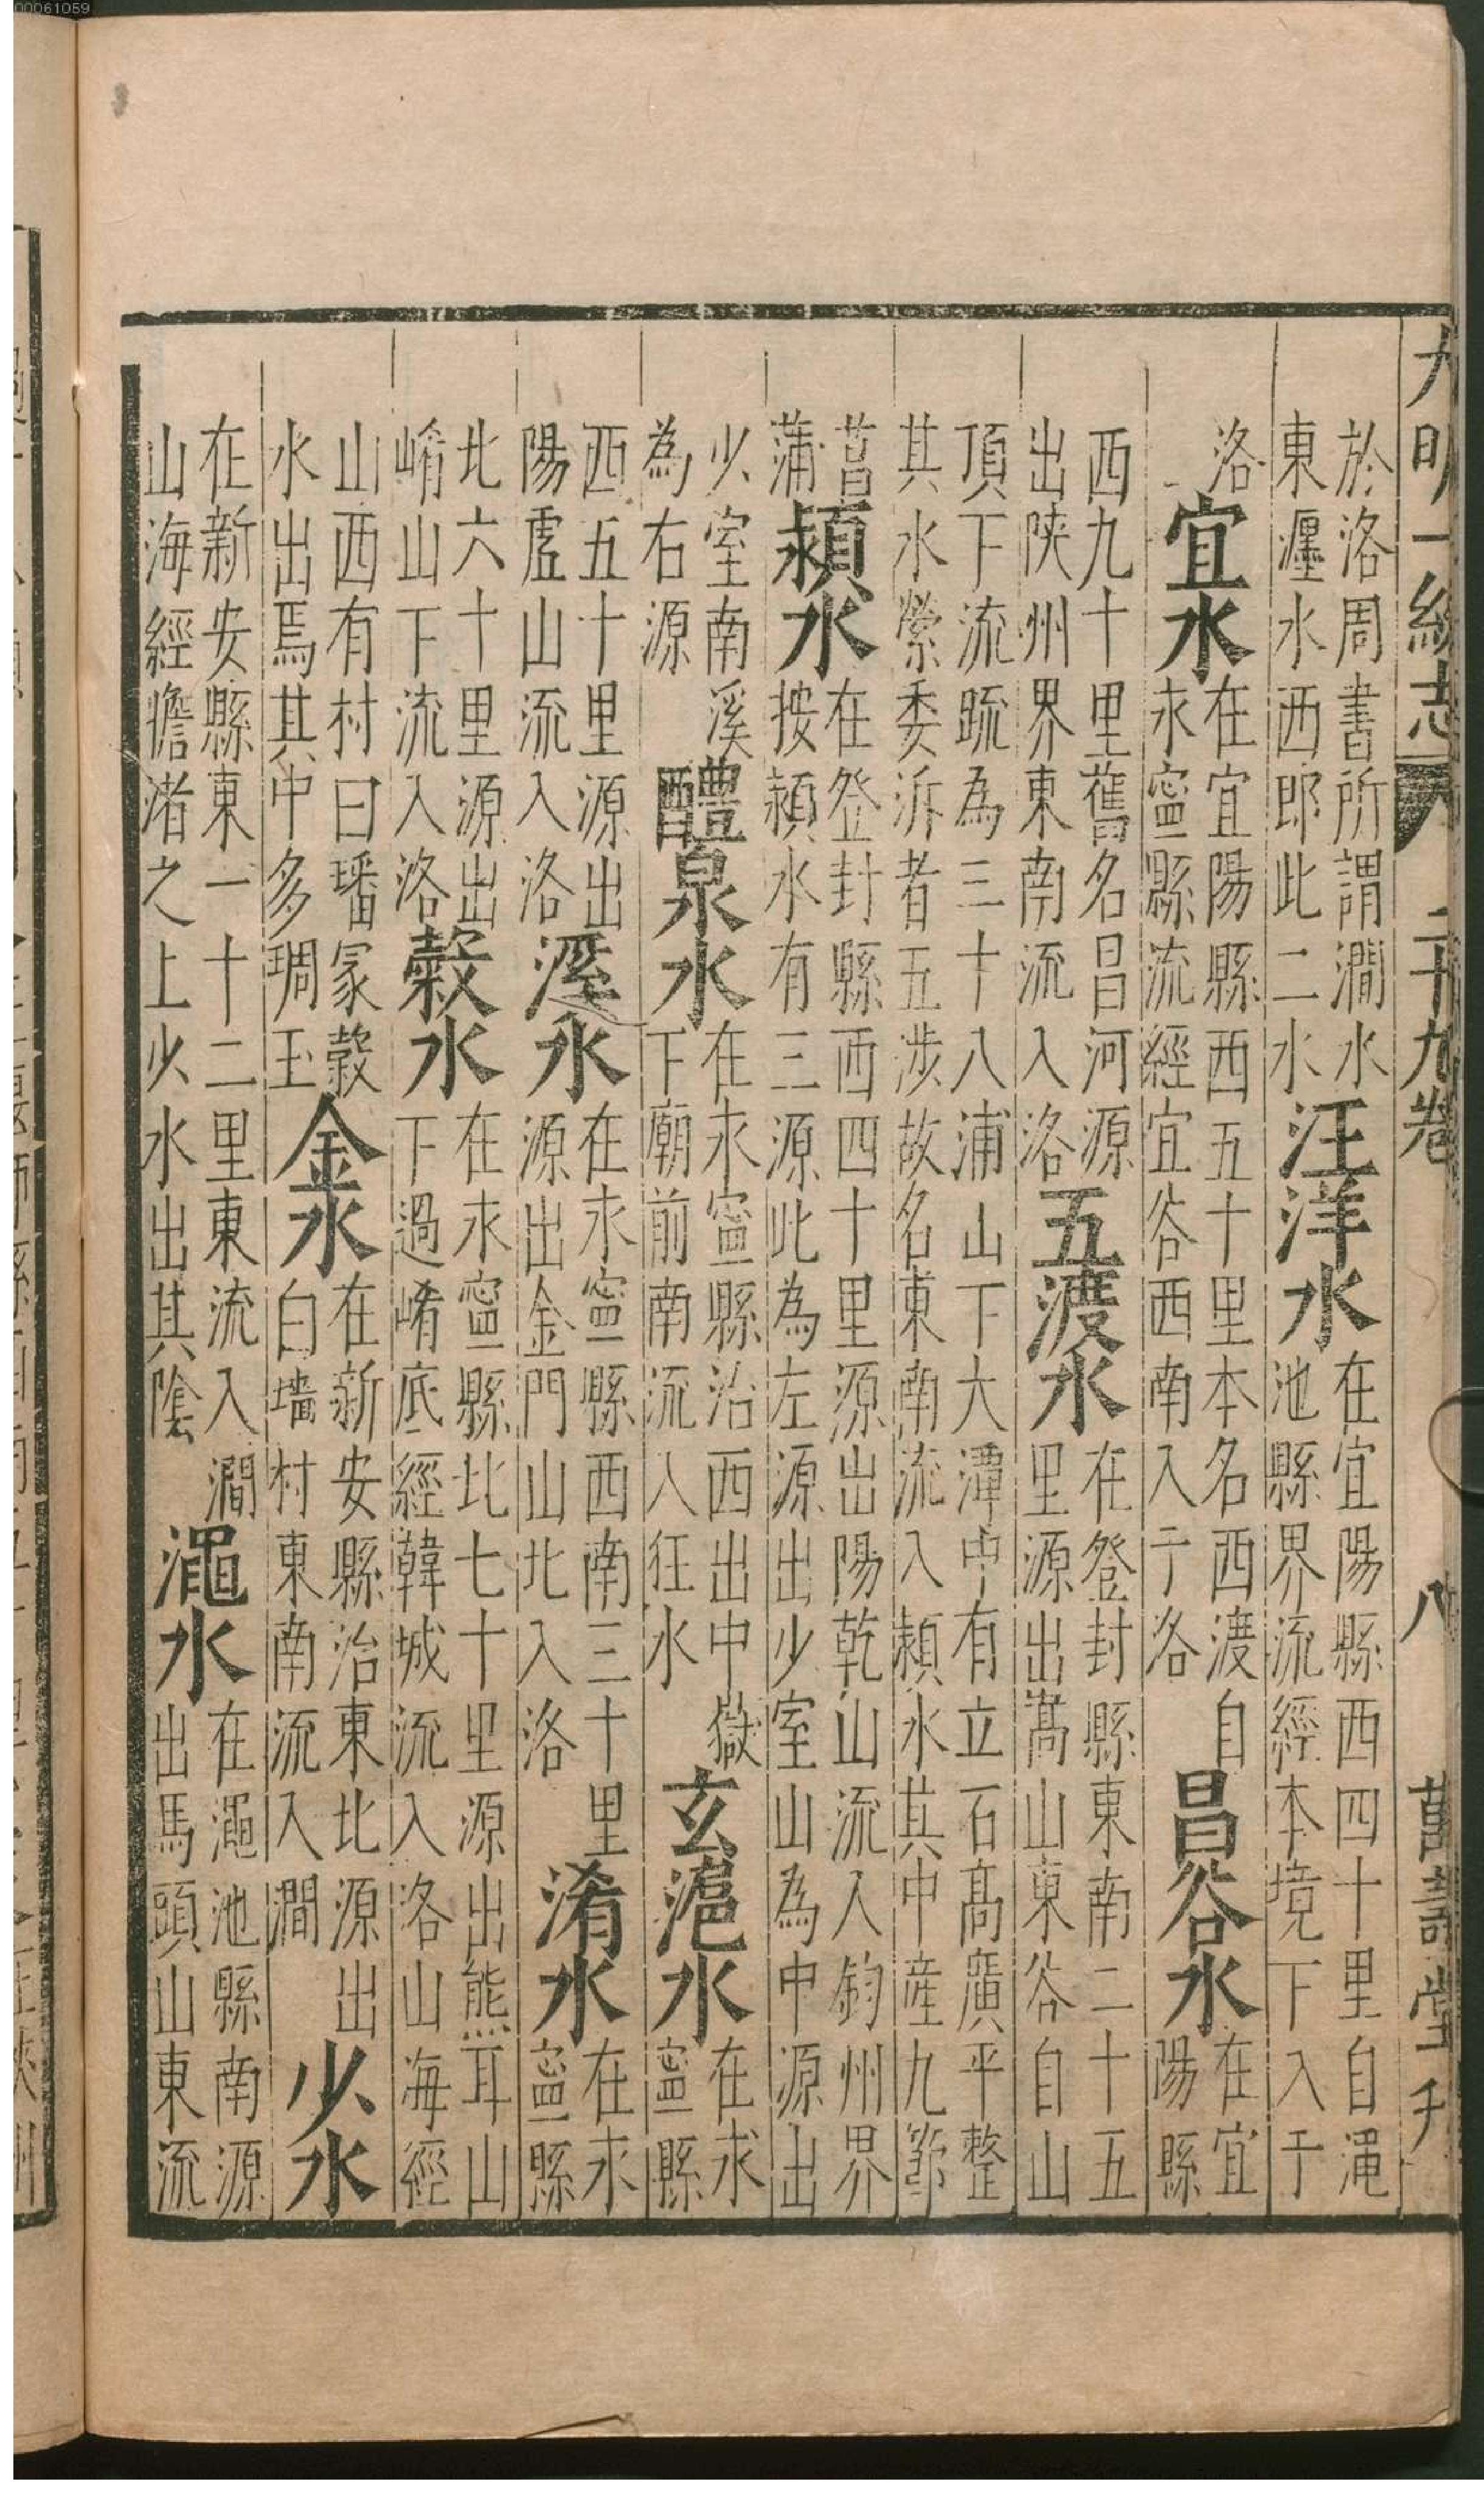 00061059
大明一統志 二十九卷 八 萬壽堂刋
於洛周書所謂澗水
東瀍水西即此二水
汪洋水
在宜陽縣西四十里自澠
池縣界流經本境下入于
洛
宜水
在宜陽縣西五十里本名西渡自
永寧縣流經宜谷西南入于洛
昌谷水
在宜
陽縣
西九十里舊名昌河源
出陝州界東南流入洛
五渡水
在登封縣東南二十五
里源出嵩山東谷自山
頂下流疏為三十八浦山下大潭中有立石高廣平整
其水縈委泝者五涉故名東南流入潁水其中產九節
菖
蒲
潁水
在登封縣西四十里源出陽乾山流入鈞州界
按潁水有三源此為左源出少室山為中源出
少室南溪
為右源
醴泉水
在永寧縣治西出中嶽
下廟前南流入狂水
玄滬水
在永
寧縣
西五十里源出
陽虛山流入洛
溪水
在永寧縣西南三十里
源出金門山北入洛
淆水
在永
寧縣
北六十里源出
崤山下流入洛
穀水
在永寧縣北七十里源出熊耳山
下過崤底經韓城流入洛山海經
山西有村曰璠冢穀
水出焉其中多琱玉
金水
在新安縣治東北源出
白墻村東南流入澗
少水
在新安縣東一十二里東流入澗
山海經儋渚之上少水出其陰
澠水
在澠池縣南源
出馬頭山東流